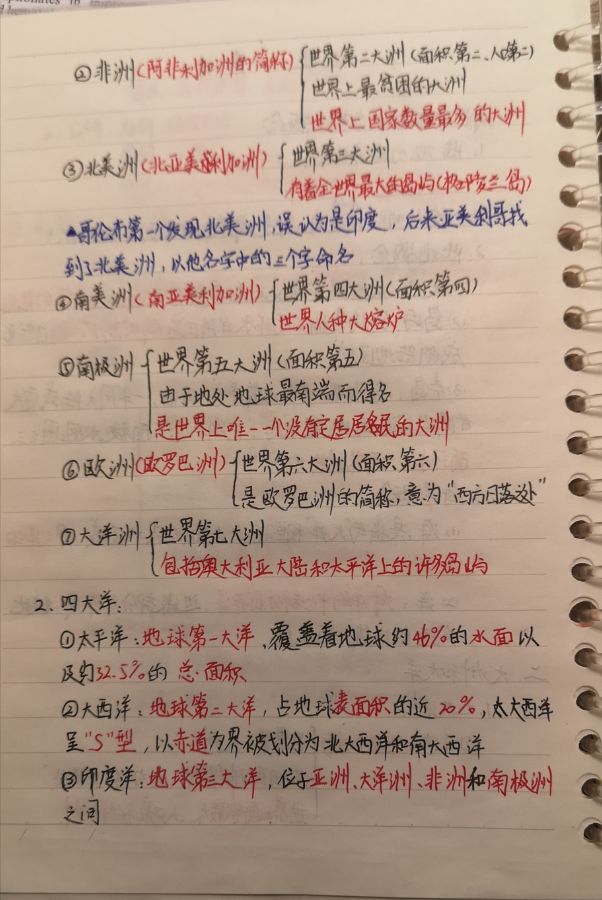 ②非洲(阿非利加洲的简称) 世界第二大洲(面积第二、人口第二)
世界上最贫困的大洲
世界上国家数量最多的大洲
③北美洲(北亚美利加洲) 世界第三大洲
有着全世界最大的岛屿(格陵兰岛)
▲哥伦布第一个发现北美洲,误认为是印度,后来亚美利哥找
到了北美洲,以他名字中的三个字命名
④南美洲(南亚美利加洲) 世界第四大洲(面积第四)
世界人种大熔炉
⑤南极洲 世界第五大洲(面积第五)
由于地处地球最南端而得名
是世界上唯一一个没有定居居民的大洲
⑥欧洲(欧罗巴洲) 世界第六大洲(面积第六)
是欧罗巴洲的简称,意为“西方日落处”
⑦大洋洲 世界第七大洲
包括澳大利亚大陆和太平洋上的许多岛屿
2.四大洋:
①太平洋:地球第一大洋,覆盖着地球约46%的水面以
及约32.5%的总面积
②大西洋:地球第二大洋,占地球表面积的近20%,大西洋
呈“S”型,以赤道为界被划分为北大西洋和南大西洋
③印度洋:地球第三大洋,位于亚洲、大洋洲、非洲和南极洲
之间